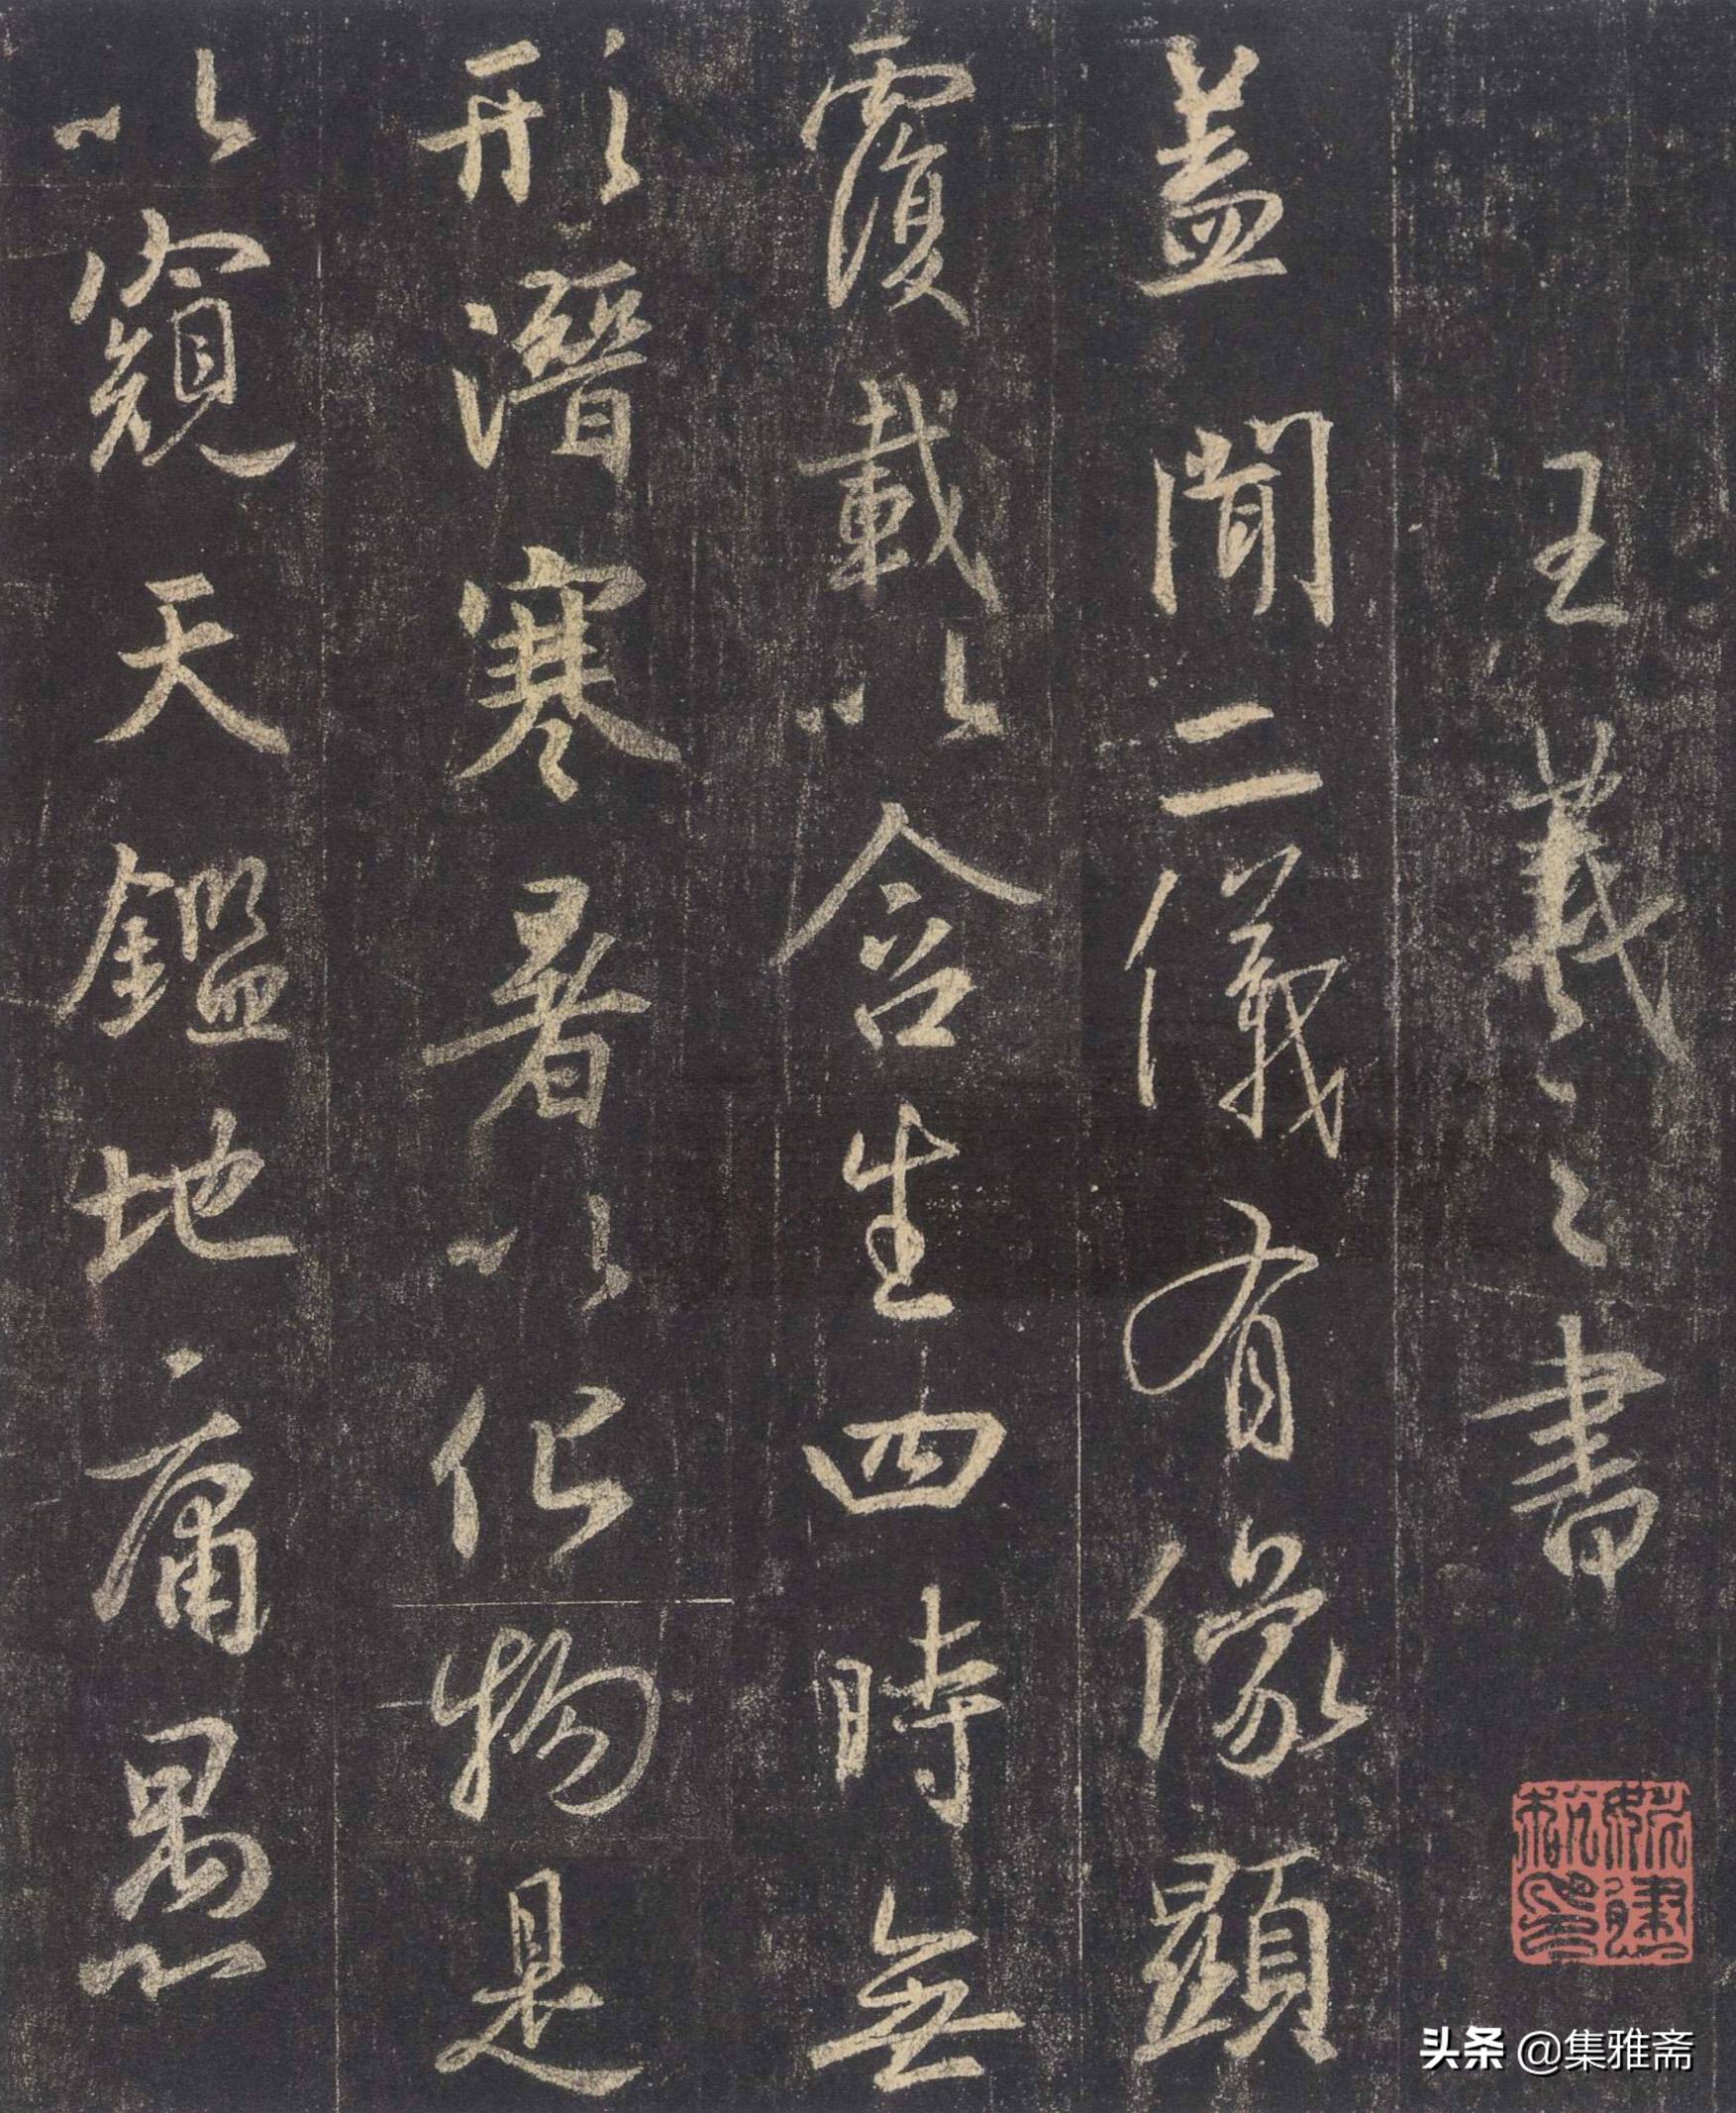 王羲之書
蓋聞二儀有像顯
覆載以含生四時無
形潛寒暑以化物是
以窺天鑑地庸愚
头条 @集雅斋